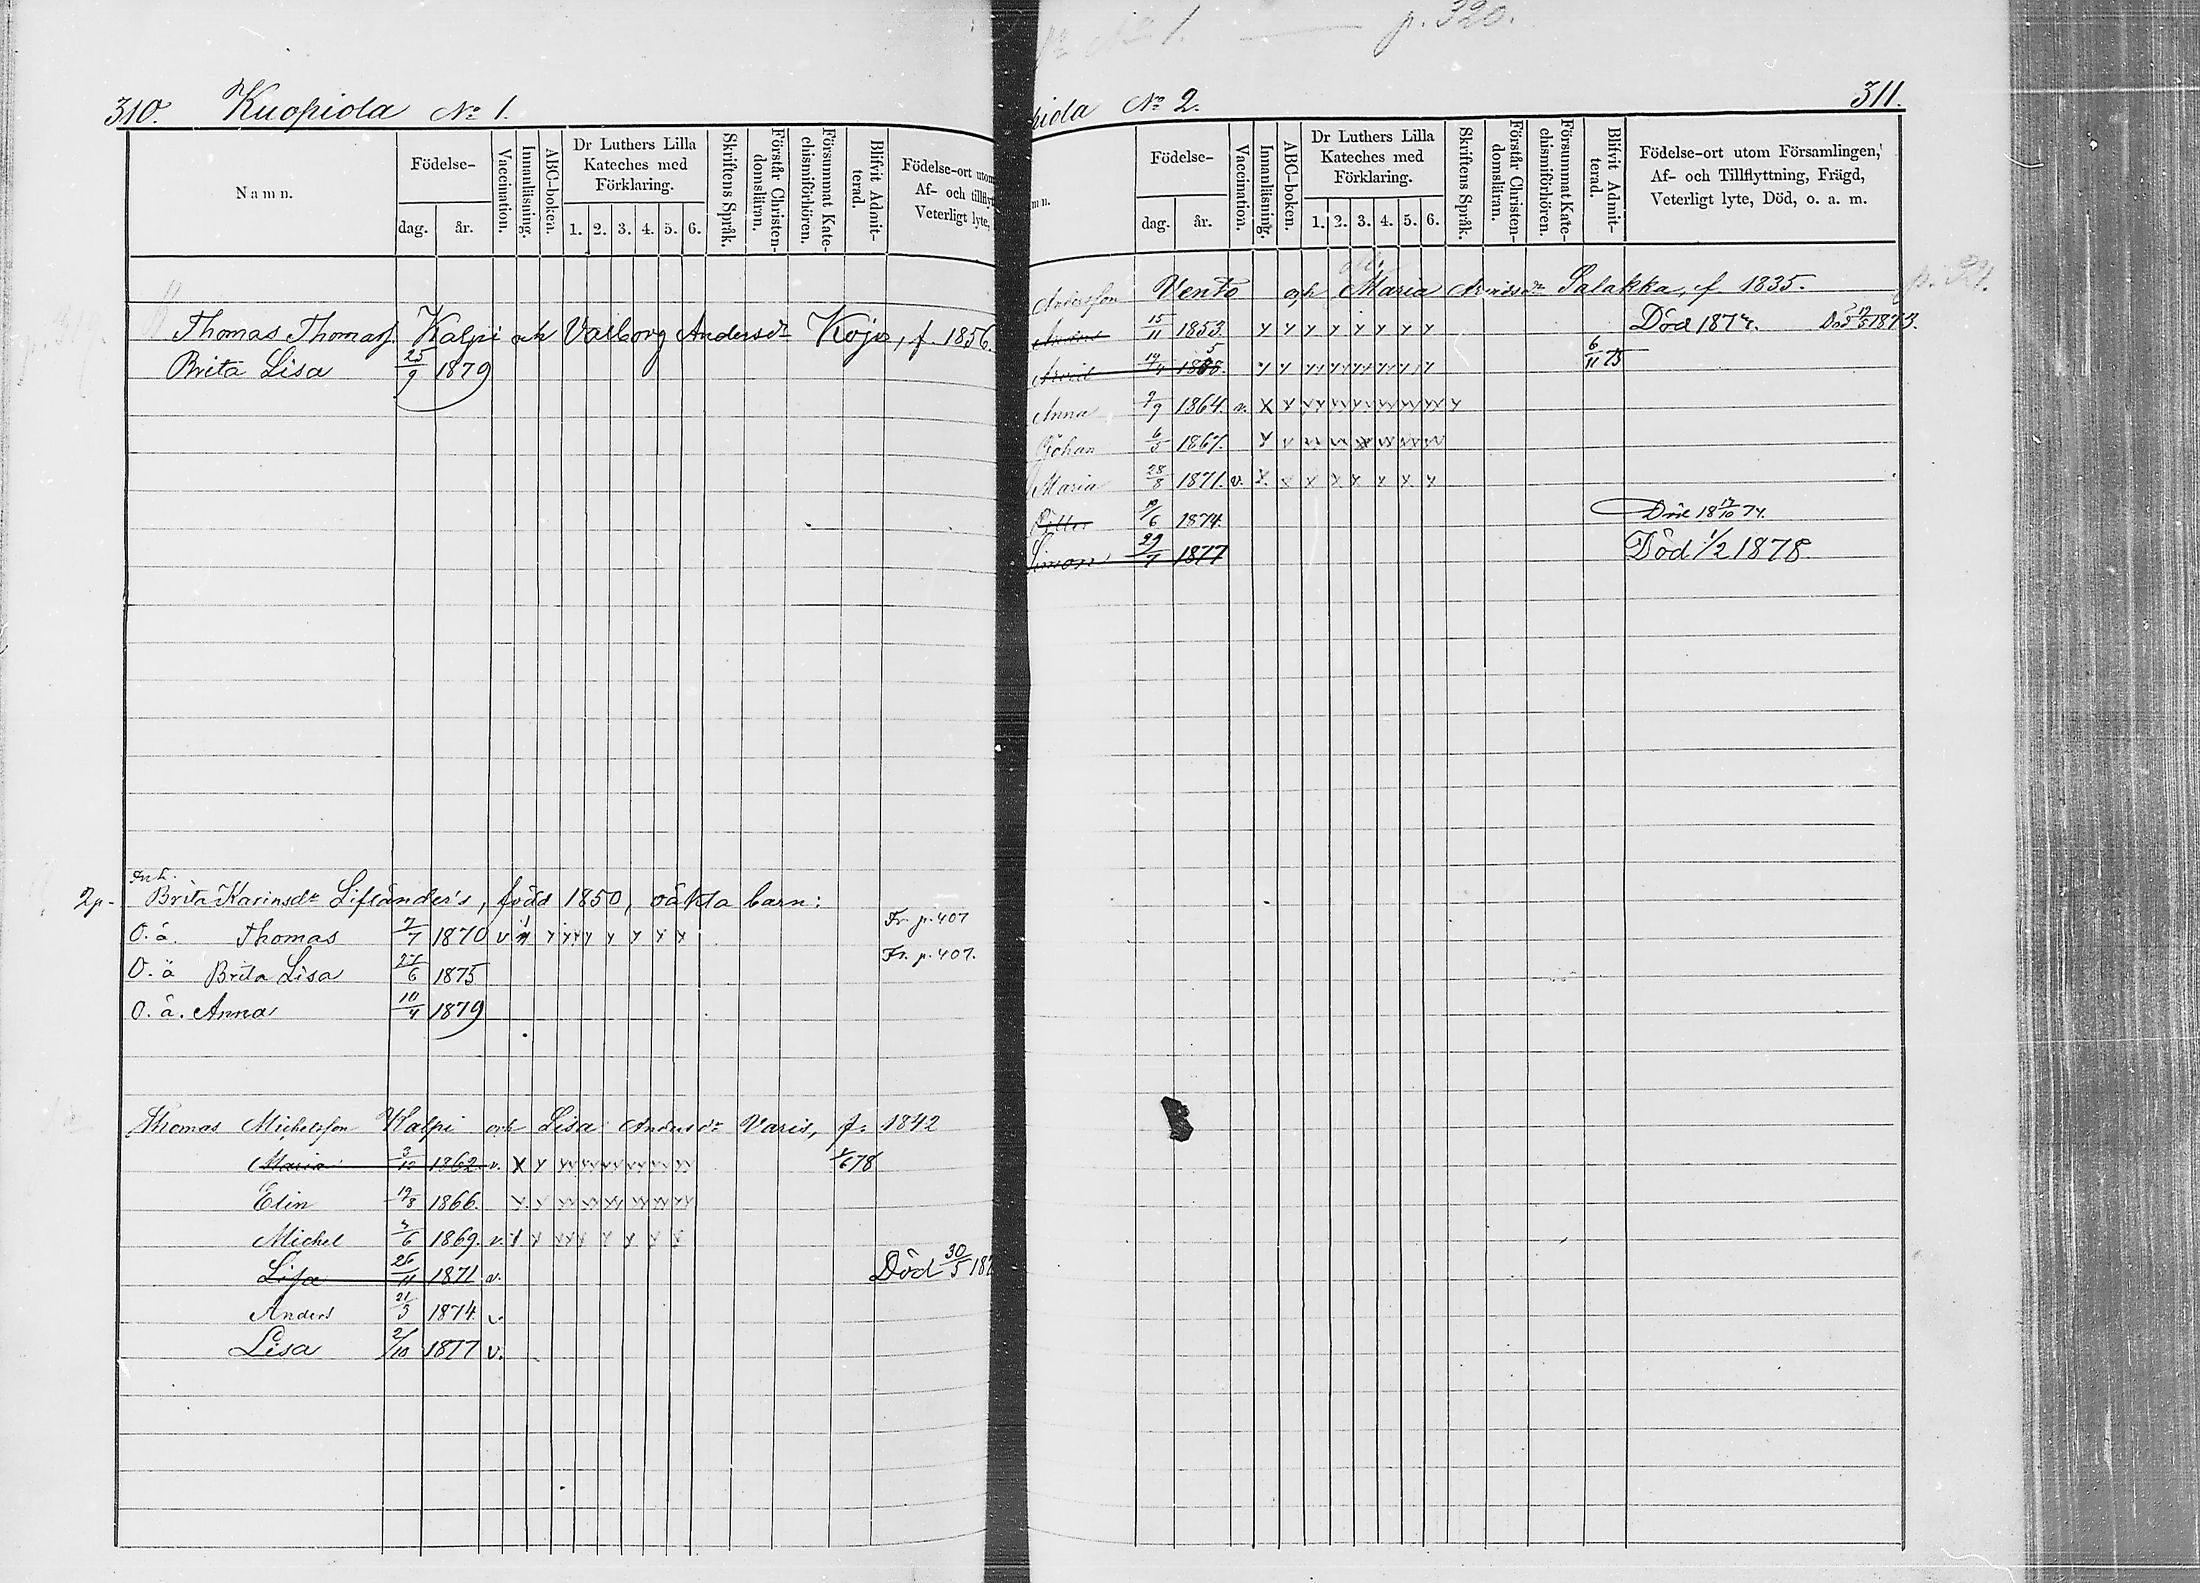 310. Kuopiola No 1.
Namn.
Födelse-
dag. år.
Vaccination.
Innanläsning.
ABC-boken.
Dr Luthers Lilla Kateches med Förklaring.
1. 2. 3. 4. 5. 6.
Skriftens Språk.
Förstår Christendomsläran.
Försummat Katechismiförhören.
Blifvit Admitterad.
Födelse-ort utom
Af- och tillfly
Veterligt lyte,
Thomas Thomasf. Kalpi och Valborg Andersdr Kojo, f. 1856.
Brita Lisa 25/9 1879
2p- Brita Karinsdr Lifländer's, född 1850, oäkta barn:
O. ä. Thomas 7/7 1870 v Fr. p. 407
O. ä Brita Lisa 27/6 1875 Fr. p. 407.
O. ä. Anna 10/4 1879
Thomas Michelsson Kalpi och Lisa Andersdr Varis, f. 1842
Maria 3/12 1862 v.
Elin 19/8 1866.
Michel 4/6 1869. v.
Lisa 26/11 1871 v. Död 30/5 187
Anders 21/3 1874 v.
Lisa 2/10 1877 v.
No 1. — p. 320.
piola No 2. 311.
mn.
Födelse-
dag. år.
Vaccination.
Innanläsning.
ABC-boken.
Dr Luthers Lilla Kateches med Förklaring.
1. 2. 3. 4. 5. 6.
Skriftens Språk.
Förstår Christendomsläran.
Försummat Katechismiförhören.
Blifvit Admitterad.
Födelse-ort utom Församlingen,
Af- och Tillflyttning, Frägd,
Veterligt lyte, Död, o. a. m.
Andersson Vento och Maria Salakka, f. 1835.
15/11 1853. Död 1874.
Arvid 19/4 1855. 6/11 75
Anna 9/9 1864. v.
Johan 6/5 1867.
Maria 28/8 1871. v.
Petter 1874 Död 18 17/10 74.
Simon 29/7 1877 Död 1/2 1878.